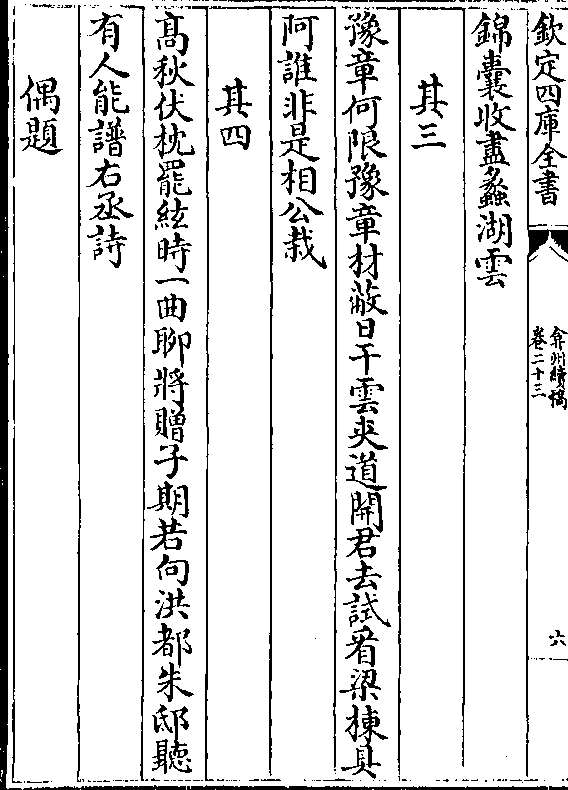 欽定四庫全書
弇州續稿
卷二十三
六
錦囊收盡蠡湖雲
其三
豫章何限豫章材蔽日干雲夾道開君去試看梁棟具
阿誰非是相公栽
其四
髙秋伏枕罷絃時一曲聊將贈子期若向洪都朱邸聽
有人能譜右丞詩
偶題